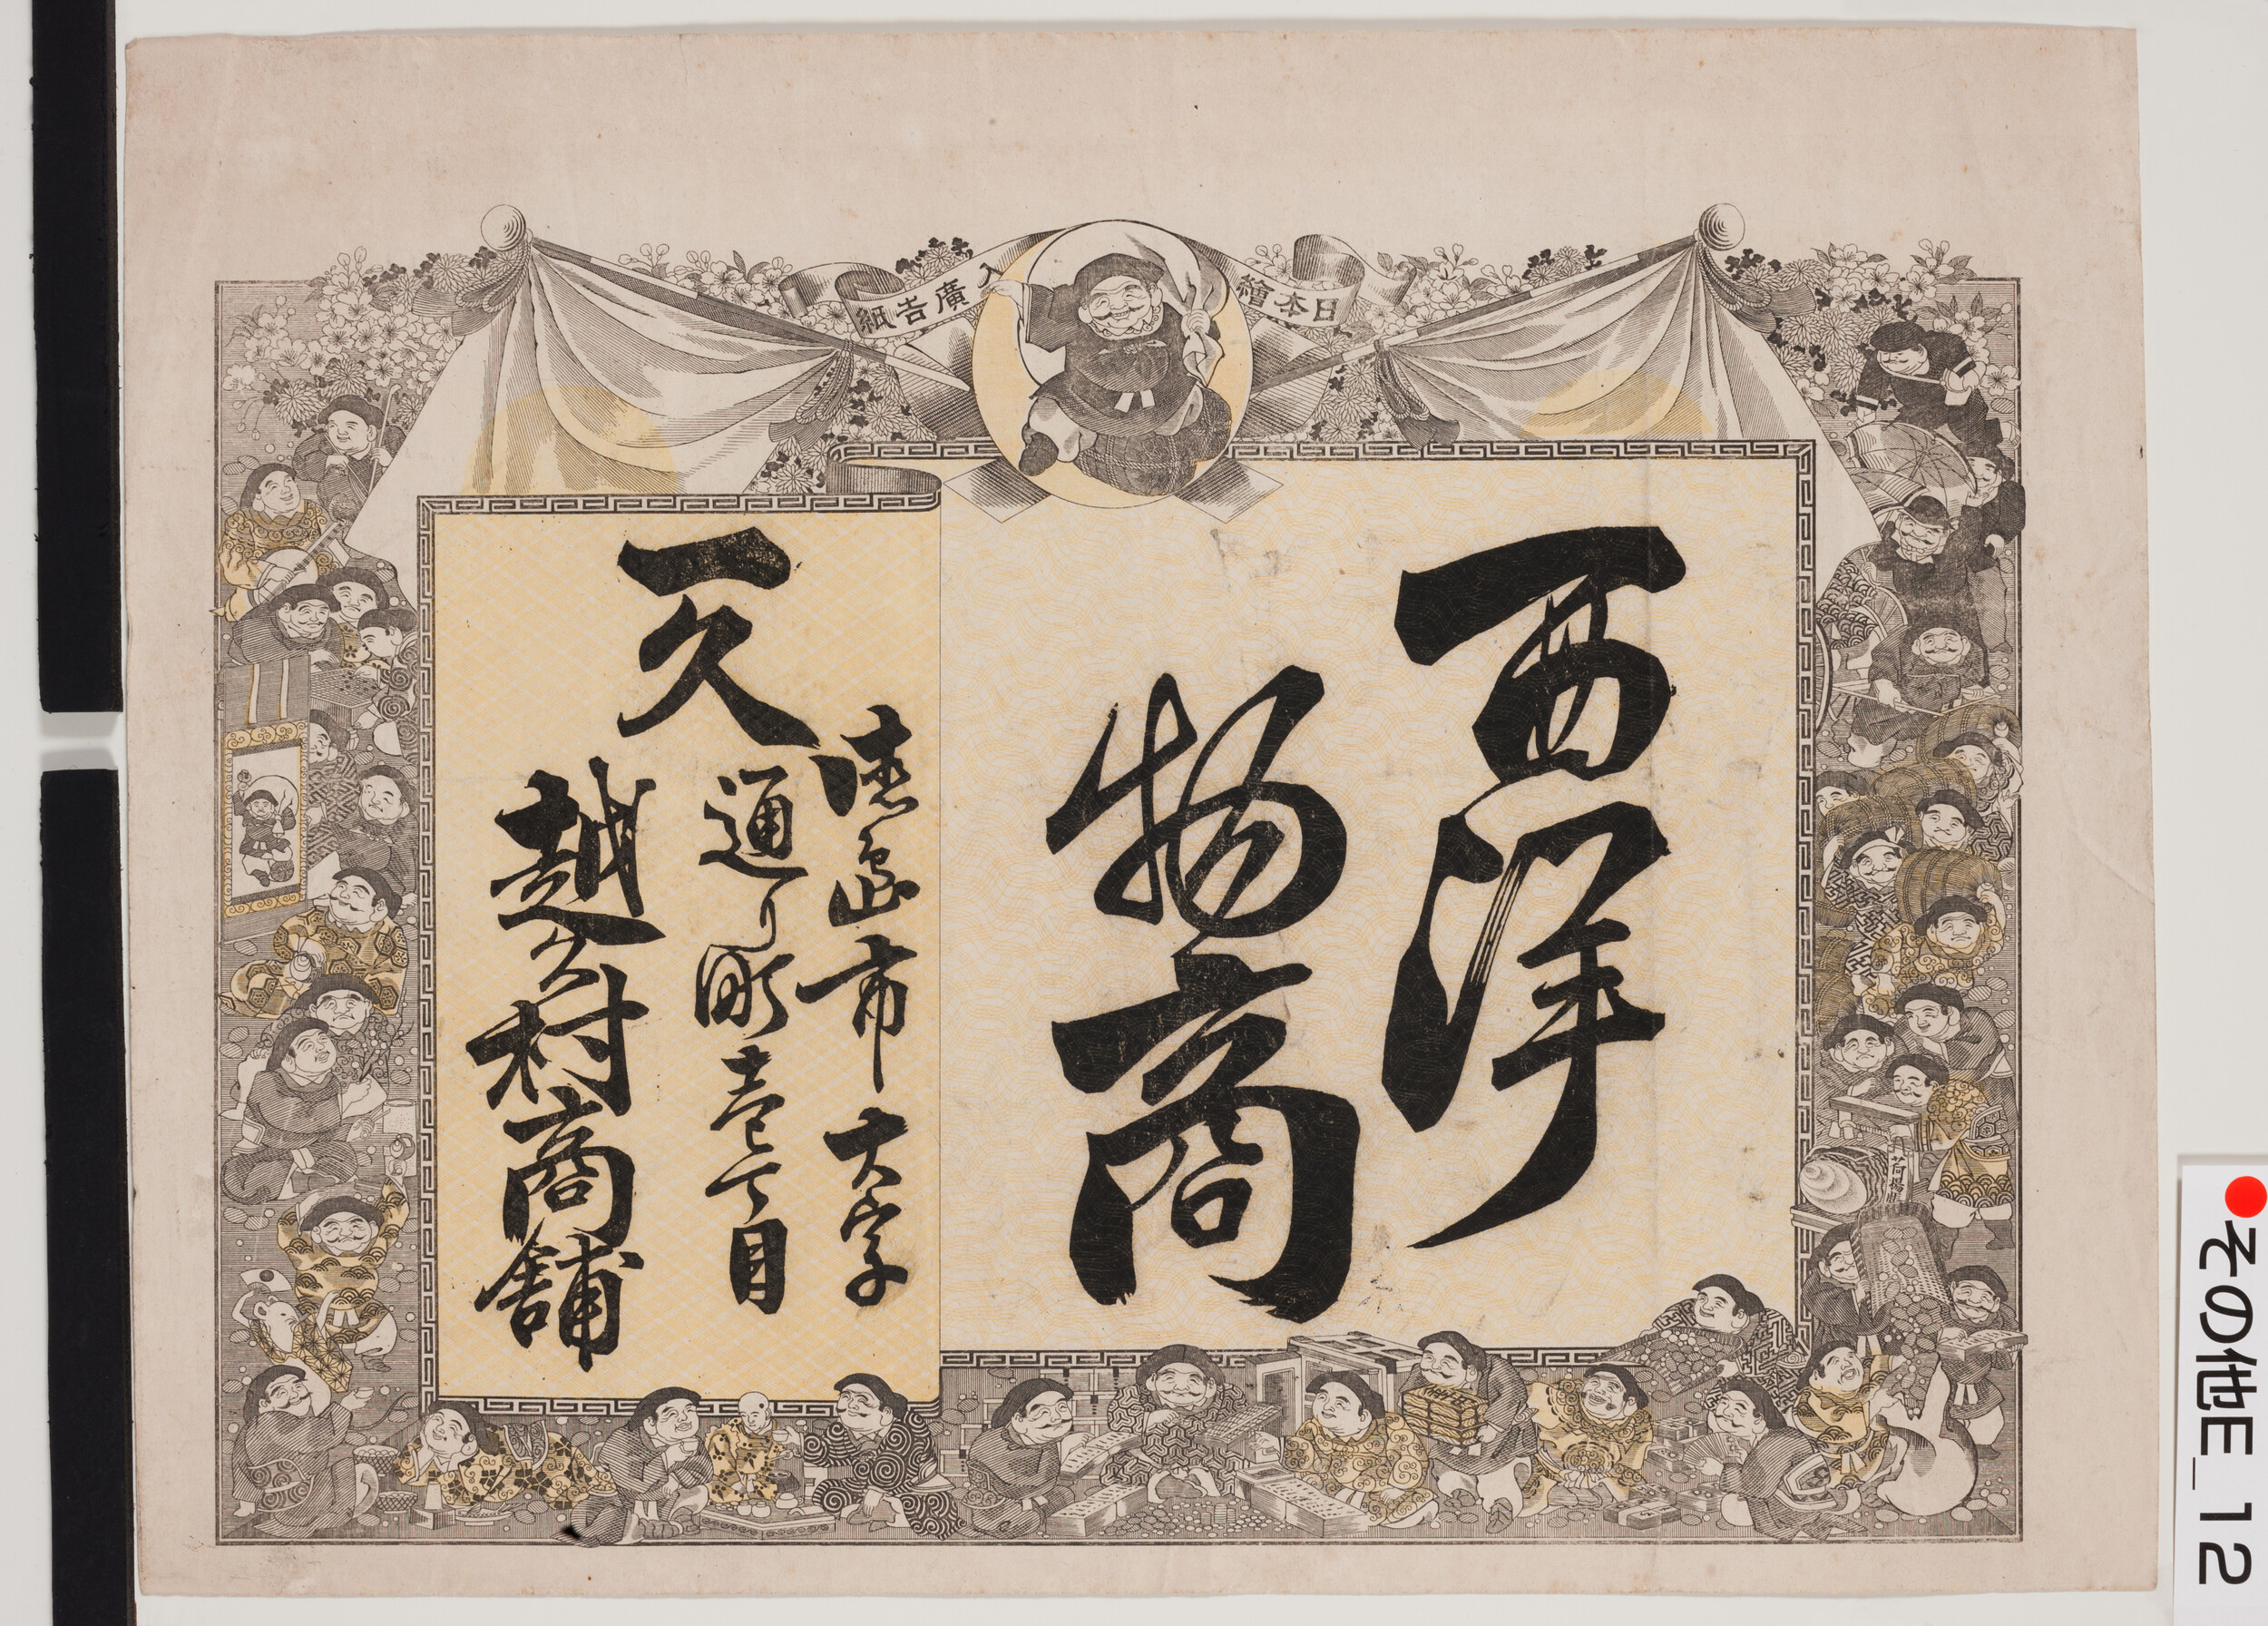 日本繪入廣告紙
西洋
物商
徳島市大字
通り町壱丁目
一久
越久村商舗
その他E_12